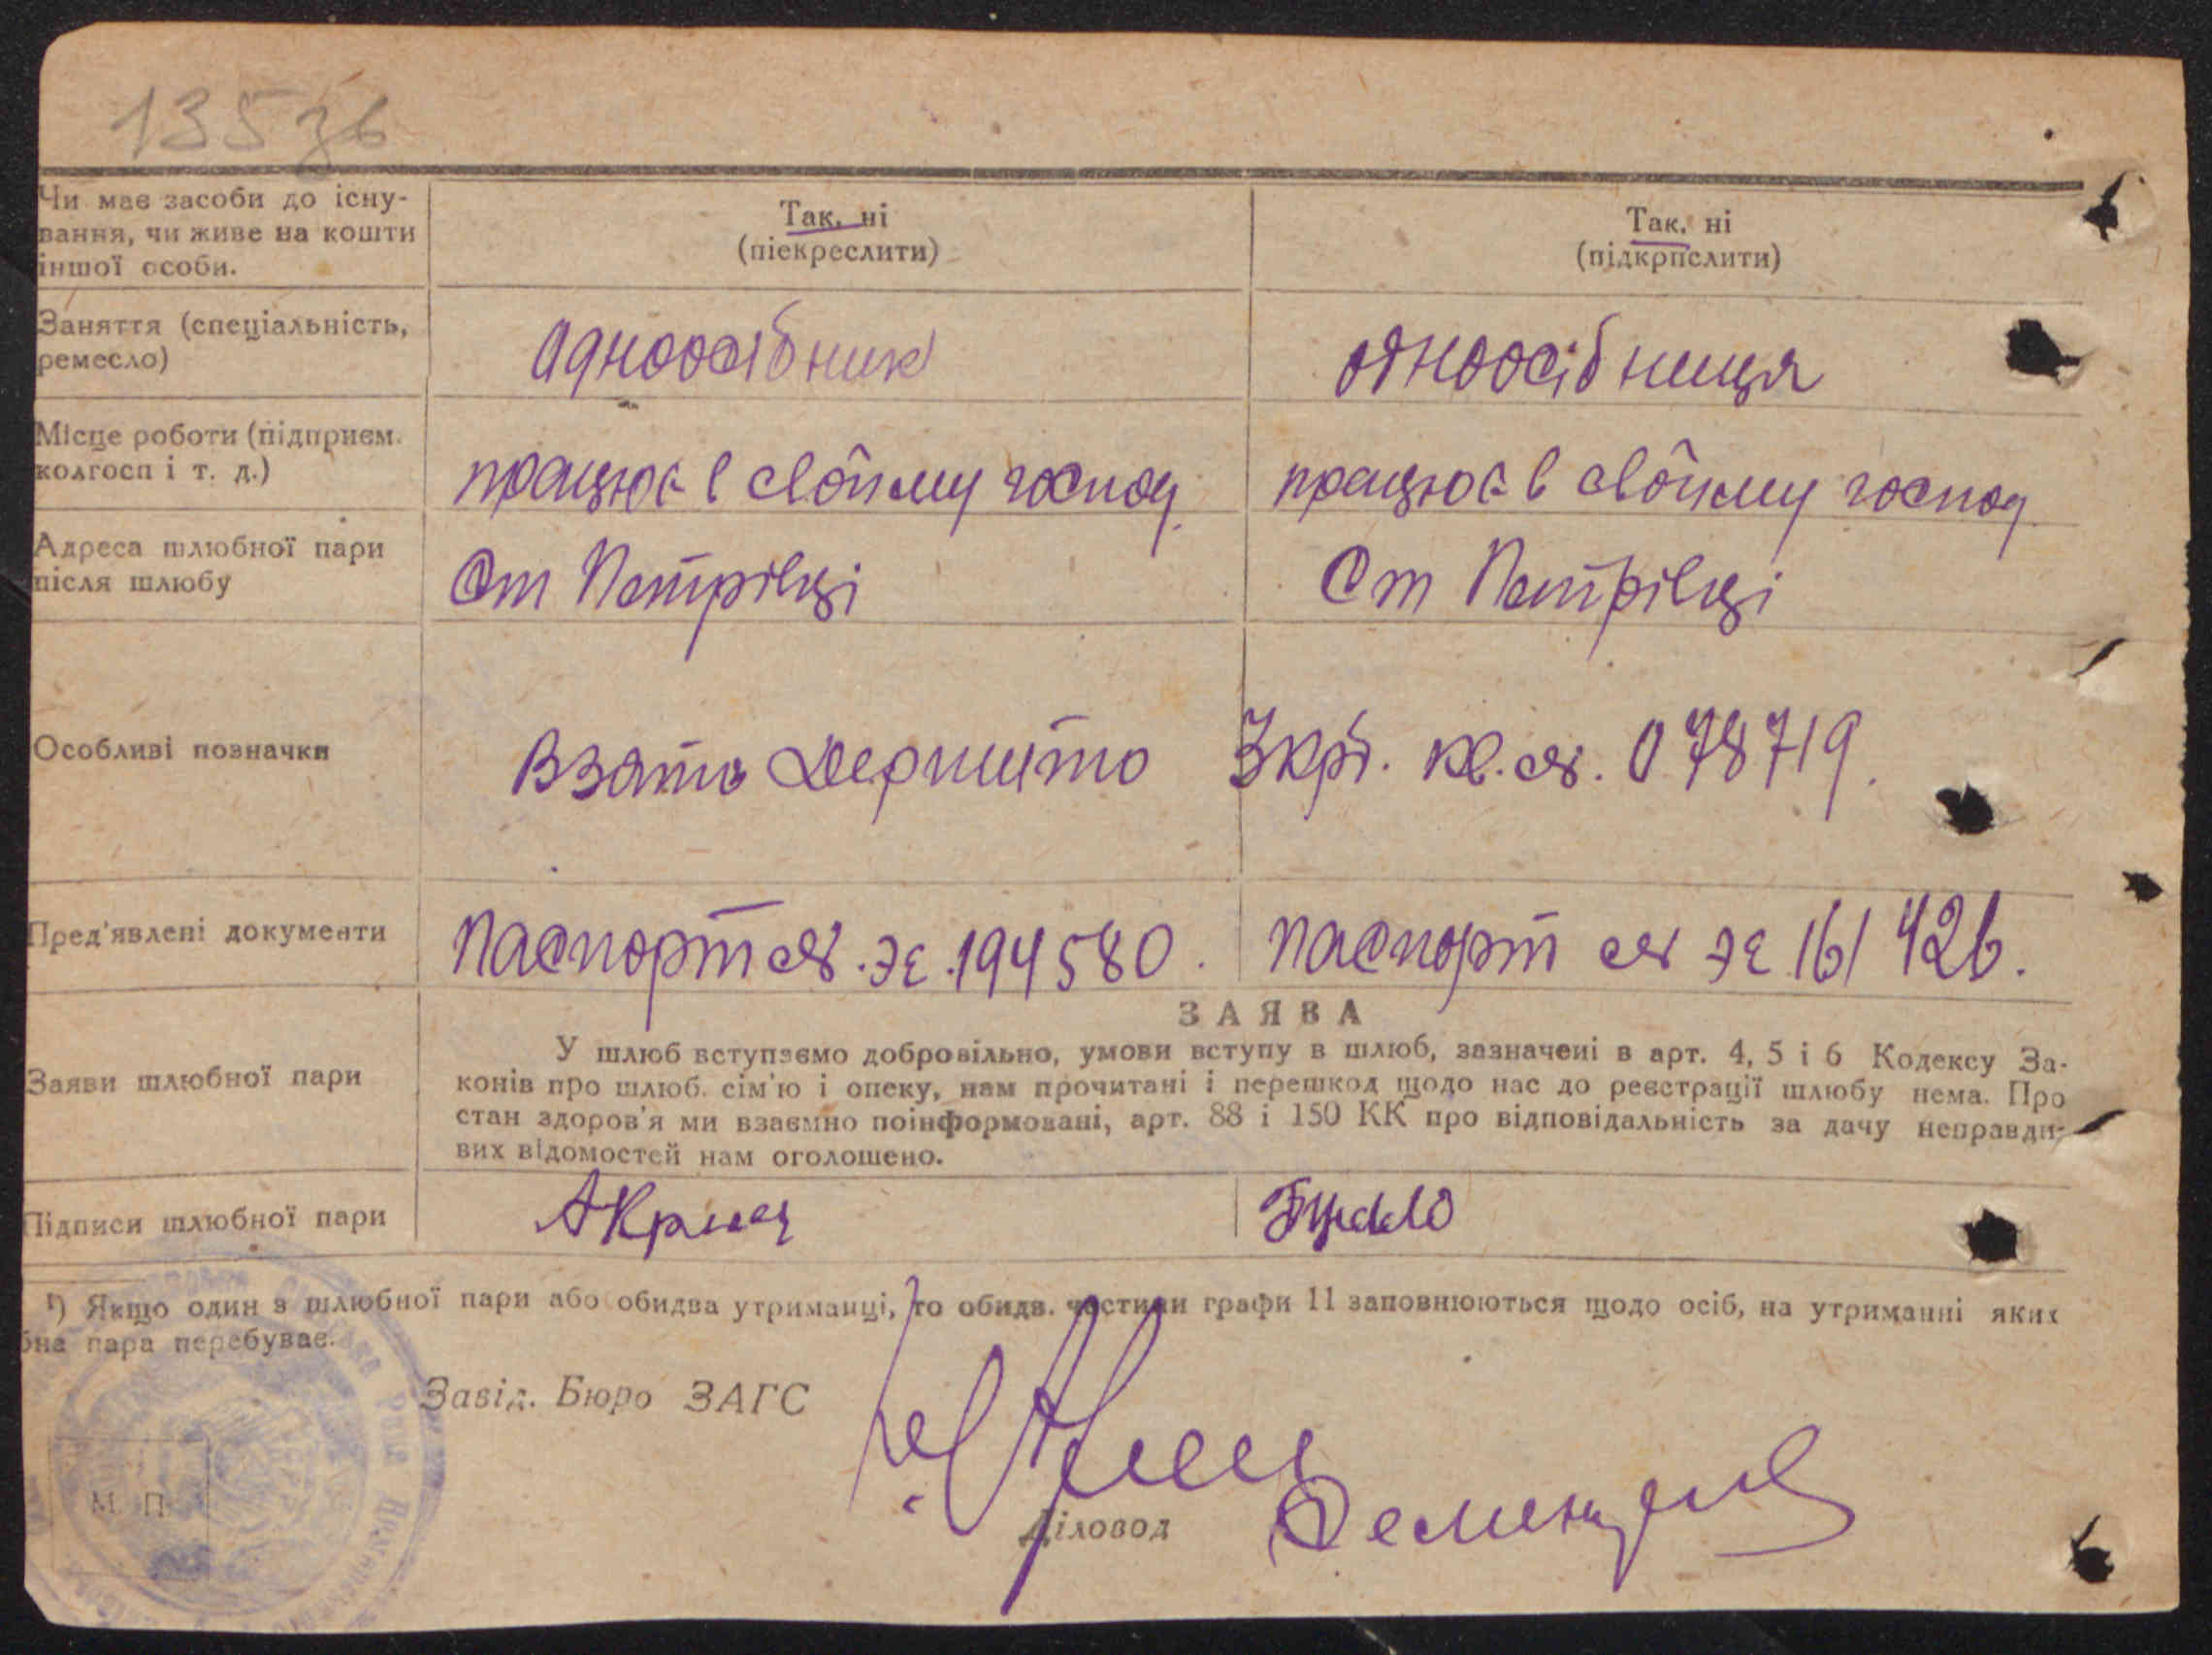 135 зв
Чи має засоби до існу-
вання, чи живе на кошти
іншої особи.
Так, ні
(піекреслити)
Так, ні
(підкрпслити)
Заняття (спеціальність,
ремесло)
одноосібник
одноосібниця
Місце роботи (підприєм.
колгосп і т. д.)
працює в своїму господ.
працює в своїму господ.
Адреса шлюбної пари
після шлюбу
Ст Петрівці
Ст Петрівці
Особливі позначки
Взято Держмито 3 крб. кв. № 078719.
Пред'явлені документи
Паспорт № ЭЄ 194580.
паспорт № ЭЄ 161426.
ЗАЯВА
Заяви шлюбної пари
У шлюб вступаємо добровільно, умови вступу в шлюб, зазначені в арт. 4, 5 і 6 Кодексу За-
конів про шлюб. сім'ю і опеку, нам прочитані і перешкод щодо нас до реєстрації шлюбу нема. Про
стан здоров'я ми взаємно поінформовані, арт. 88 і 150 КК про відповідальність за дачу неправди-
вих відомостей нам оголошено.
Підписи шлюбної пари
¹) Якщо один з шлюбної пари або обидва утриманці, то обидв. частини графи 11 заповнюються щодо осіб, на утриманні яких
бна пара перебуває.
Завід. Бюро ЗАГС
М. П.
Діловод